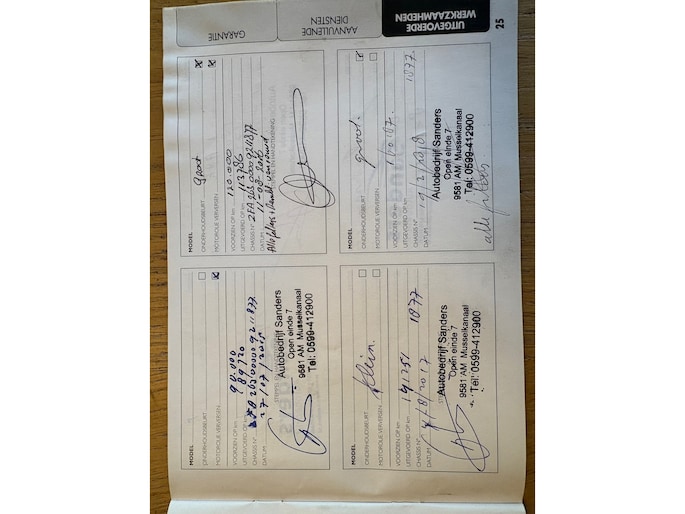 25
UITGEVOERDE
WERKZAAMHEDEN
AANVULLENDE
DIENSTEN
GARANTIE
MODEL
ONDERHOUDSBEURT
MOTOROLIE VERVERSEN
VOORZIEN OP km 90.000
UITGEVOERD OP km 89720
CHASSIS N°
DATUM 27/07/2015
Autobedrijf Sanders
Open einde 7
9581 AM Musselkanaal
Tel: 0599-412900
MODEL groot
ONDERHOUDSBEURT
MOTOROLIE VERVERSEN
VOORZIEN OP km 120.000
UITGEVOERD OP km 113786
CHASSIS N°
DATUM 11-08-2016
MODEL klein.
ONDERHOUDSBEURT
MOTOROLIE VERVERSEN
VOORZIEN OP km
UITGEVOERD OP km 141251
CHASSIS N° 1877
DATUM 4/8/2017
Autobedrijf Sanders
Open einde 7
9581 AM Musselkanaal
Tel: 0599-412900
MODEL groot.
ONDERHOUDSBEURT
MOTOROLIE VERVERSEN
VOORZIEN OP km
UITGEVOERD OP km
CHASSIS N° 1877
DATUM
Autobedrijf Sanders
Open einde 7
9581 AM Musselkanaal
Tel: 0599-412900
alle filters